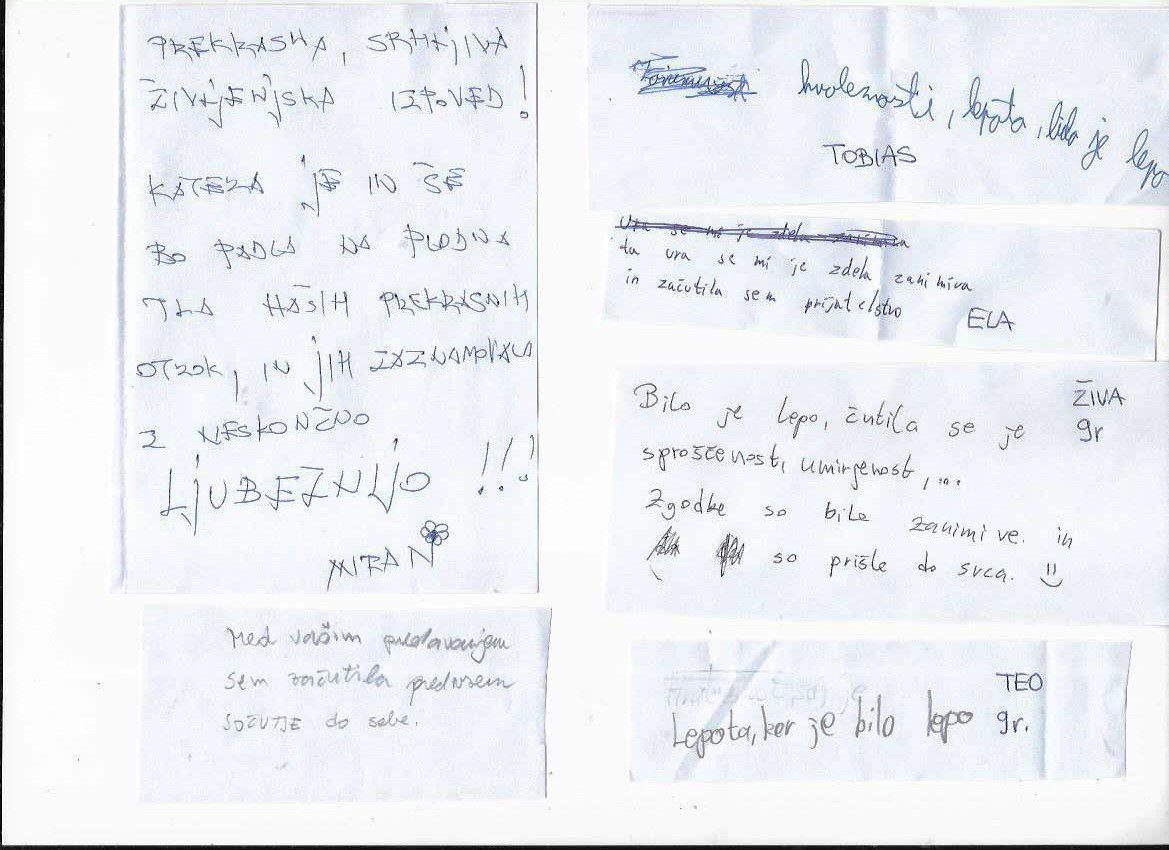 PREKRASNA, SRHLJIVA
ŽIVLJENJSKA IZPOVED!
KATERA JE IN ŠE
BO PADLA NA PLODNA
TLA NAŠIH PREKRASNIH
OTROK, IN JIH ZAZNAMOVALA
Z NESKONČNO
LJUBEZNIJO !!!
MIRAN
Med vašim predavanjem
sem začutila predvsem
SOČUTJE do sebe.
hvoleznosti, lepota, bilo je lepo
TOBIAS
Ura se mi je zdela zanimiva
ta ura se mi je zdela zanimiva
in začutila sem prijatelstvo
ELA
ŽIVA
9r
Bilo je lepo, čutila se je
sproščenost, umirjenost,...
Zgodbe so bile zanimive. in
so prišle do srca.
TEO
9r.
Lepota, ker je bilo lepo